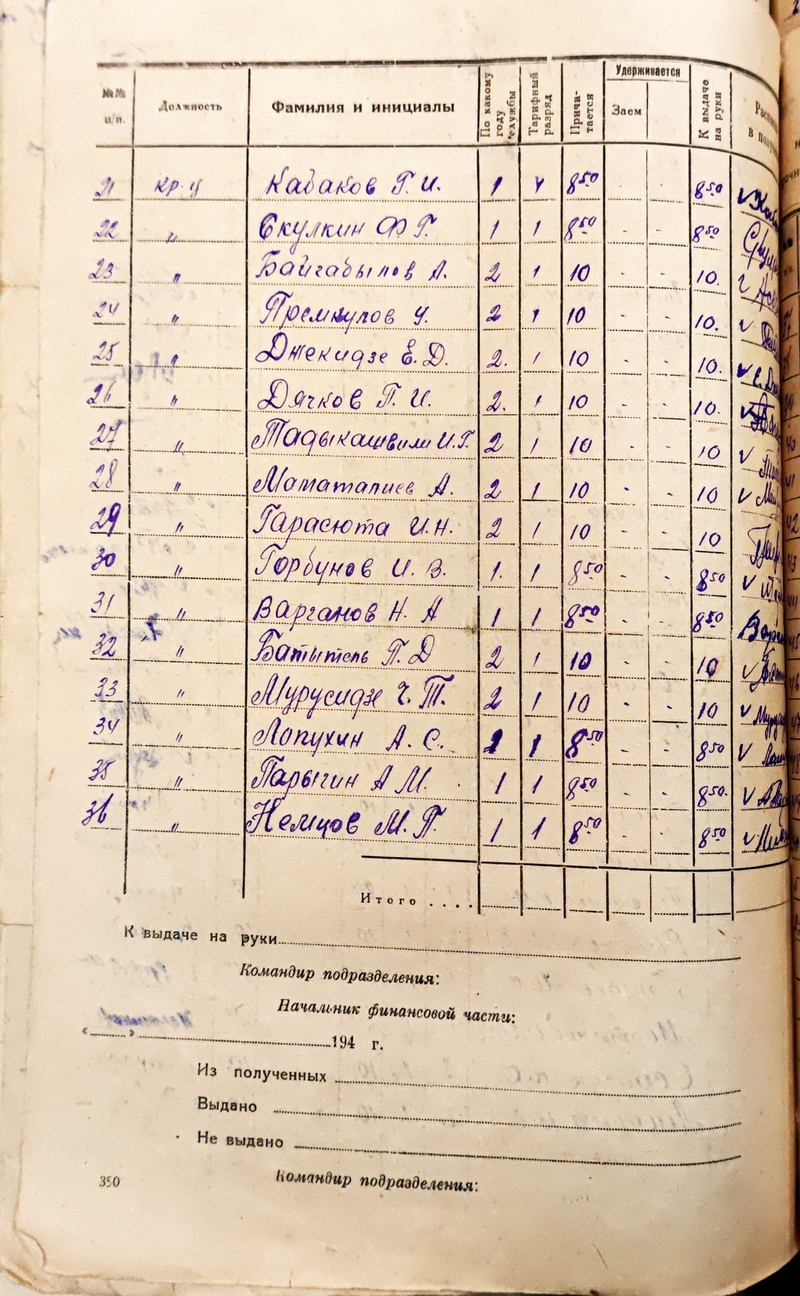 №№ п/п. Должность Фамилия и инициалы По какому году службы Тарифный разряд Причитается Удерживается Заем К выдаче на руки
21 кр-ц Кабаков Г. И. 1 1 8 50 - - 8 50
22 " Скулкин Ф Г. 1 1 8 50 - - 8 50
23 " Байгабылов А. 2 1 10 - - 10.
24 " Премкулов У. 2 1 10 - - 10.
25 " Джекидзе Е. Д. 2. 1 10 - - 10.
26 " Дячков Г. И. 2. 1 10 - - 10.
27 " Тадыкашвили И. Г. 2 1 10 - - 10
28 " Маматалиев А. 2 1 10 - - 10
29 " Гарасюта И. Н. 2 1 10 - - 10
30 " Горбунов И. В. 1. 1 8 50 - - 8 50
31 " Варганов Н. А 1 1 8 50 - - 8 50
32 " Батытель П. Д 2 1 10 - - 10
33 " Мурусидзе Ч. Т. 2 1 10 - - 10
34 " Лопухин А. С. 1 1 8 50 - - 8 50
35 " Парыгин А М. 1 1 8 50 - - 8 50
36 " Немцов М. Г. 1 1 8 50 - - 8 50
Итого ....
К выдаче на руки
Командир подразделения:
Начальник финансовой части:
" " 194 г.
Из полученных
Выдано
Не выдано
350 Командир подразделения: